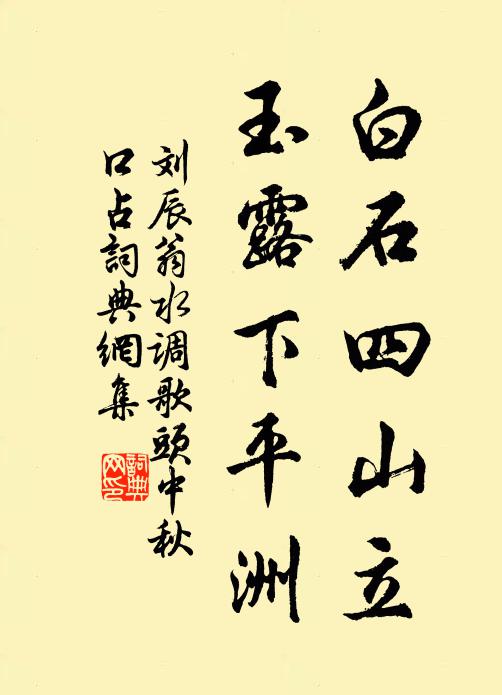 白石四山立
玉露下平洲
刘辰翁水调歌頭中秋
口占詞典網集
詞典
网印